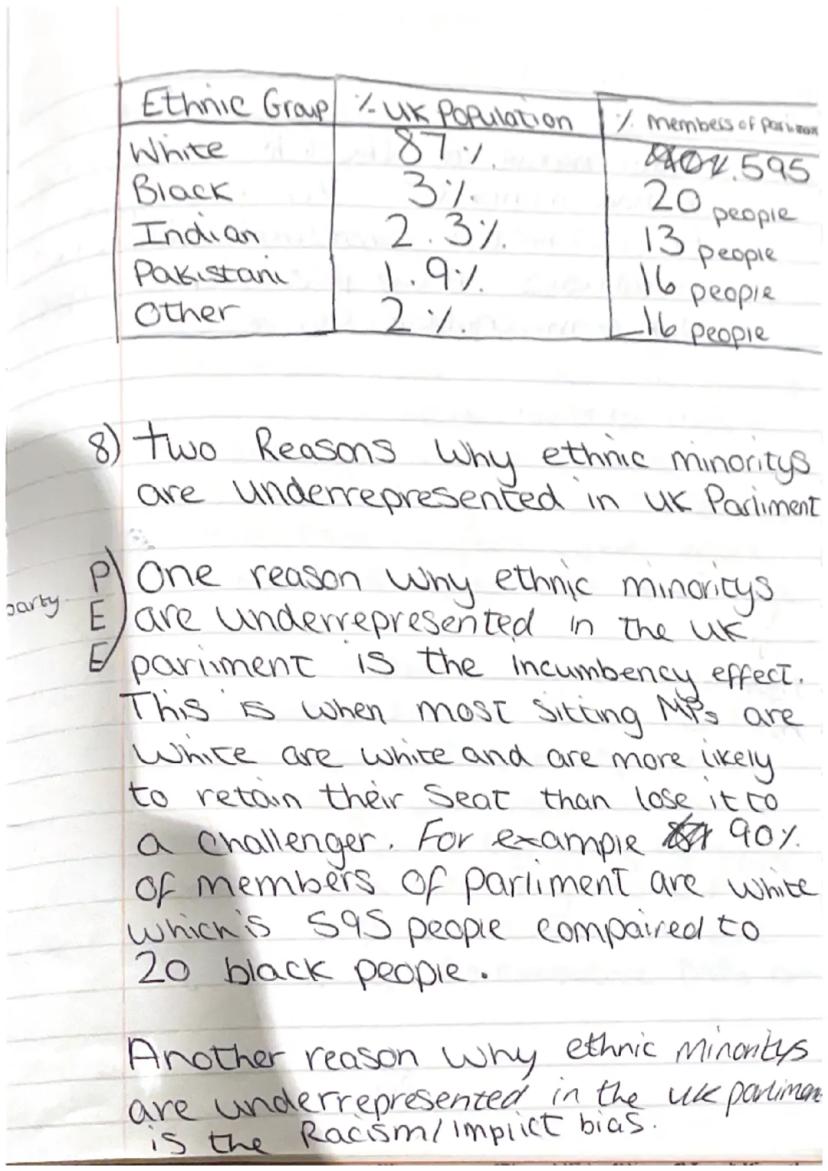 Ethnic Group % UK Population % members of
White 87% 595
Black 3% 20 people
Indian 2.3% 13 people
Pakistani 1.9% 16 people
Other 2% 16 people
8) two Reasons why ethnic minoritys
are underrepresented in UK Parliment
P One reason why ethnic minoritys
party E are underrepresented in the UK
E parliment is the incumbency effect.
This is when most sitting MPs are
white are white and are more likely
to retain their seat than lose it to
a challenger. For example 90%
of members of parliment are white
which is 595 people compaired to
20 black people.
Another reason why ethnic minoritys
are underrepresented in the UK
is the Racism/implict bias.